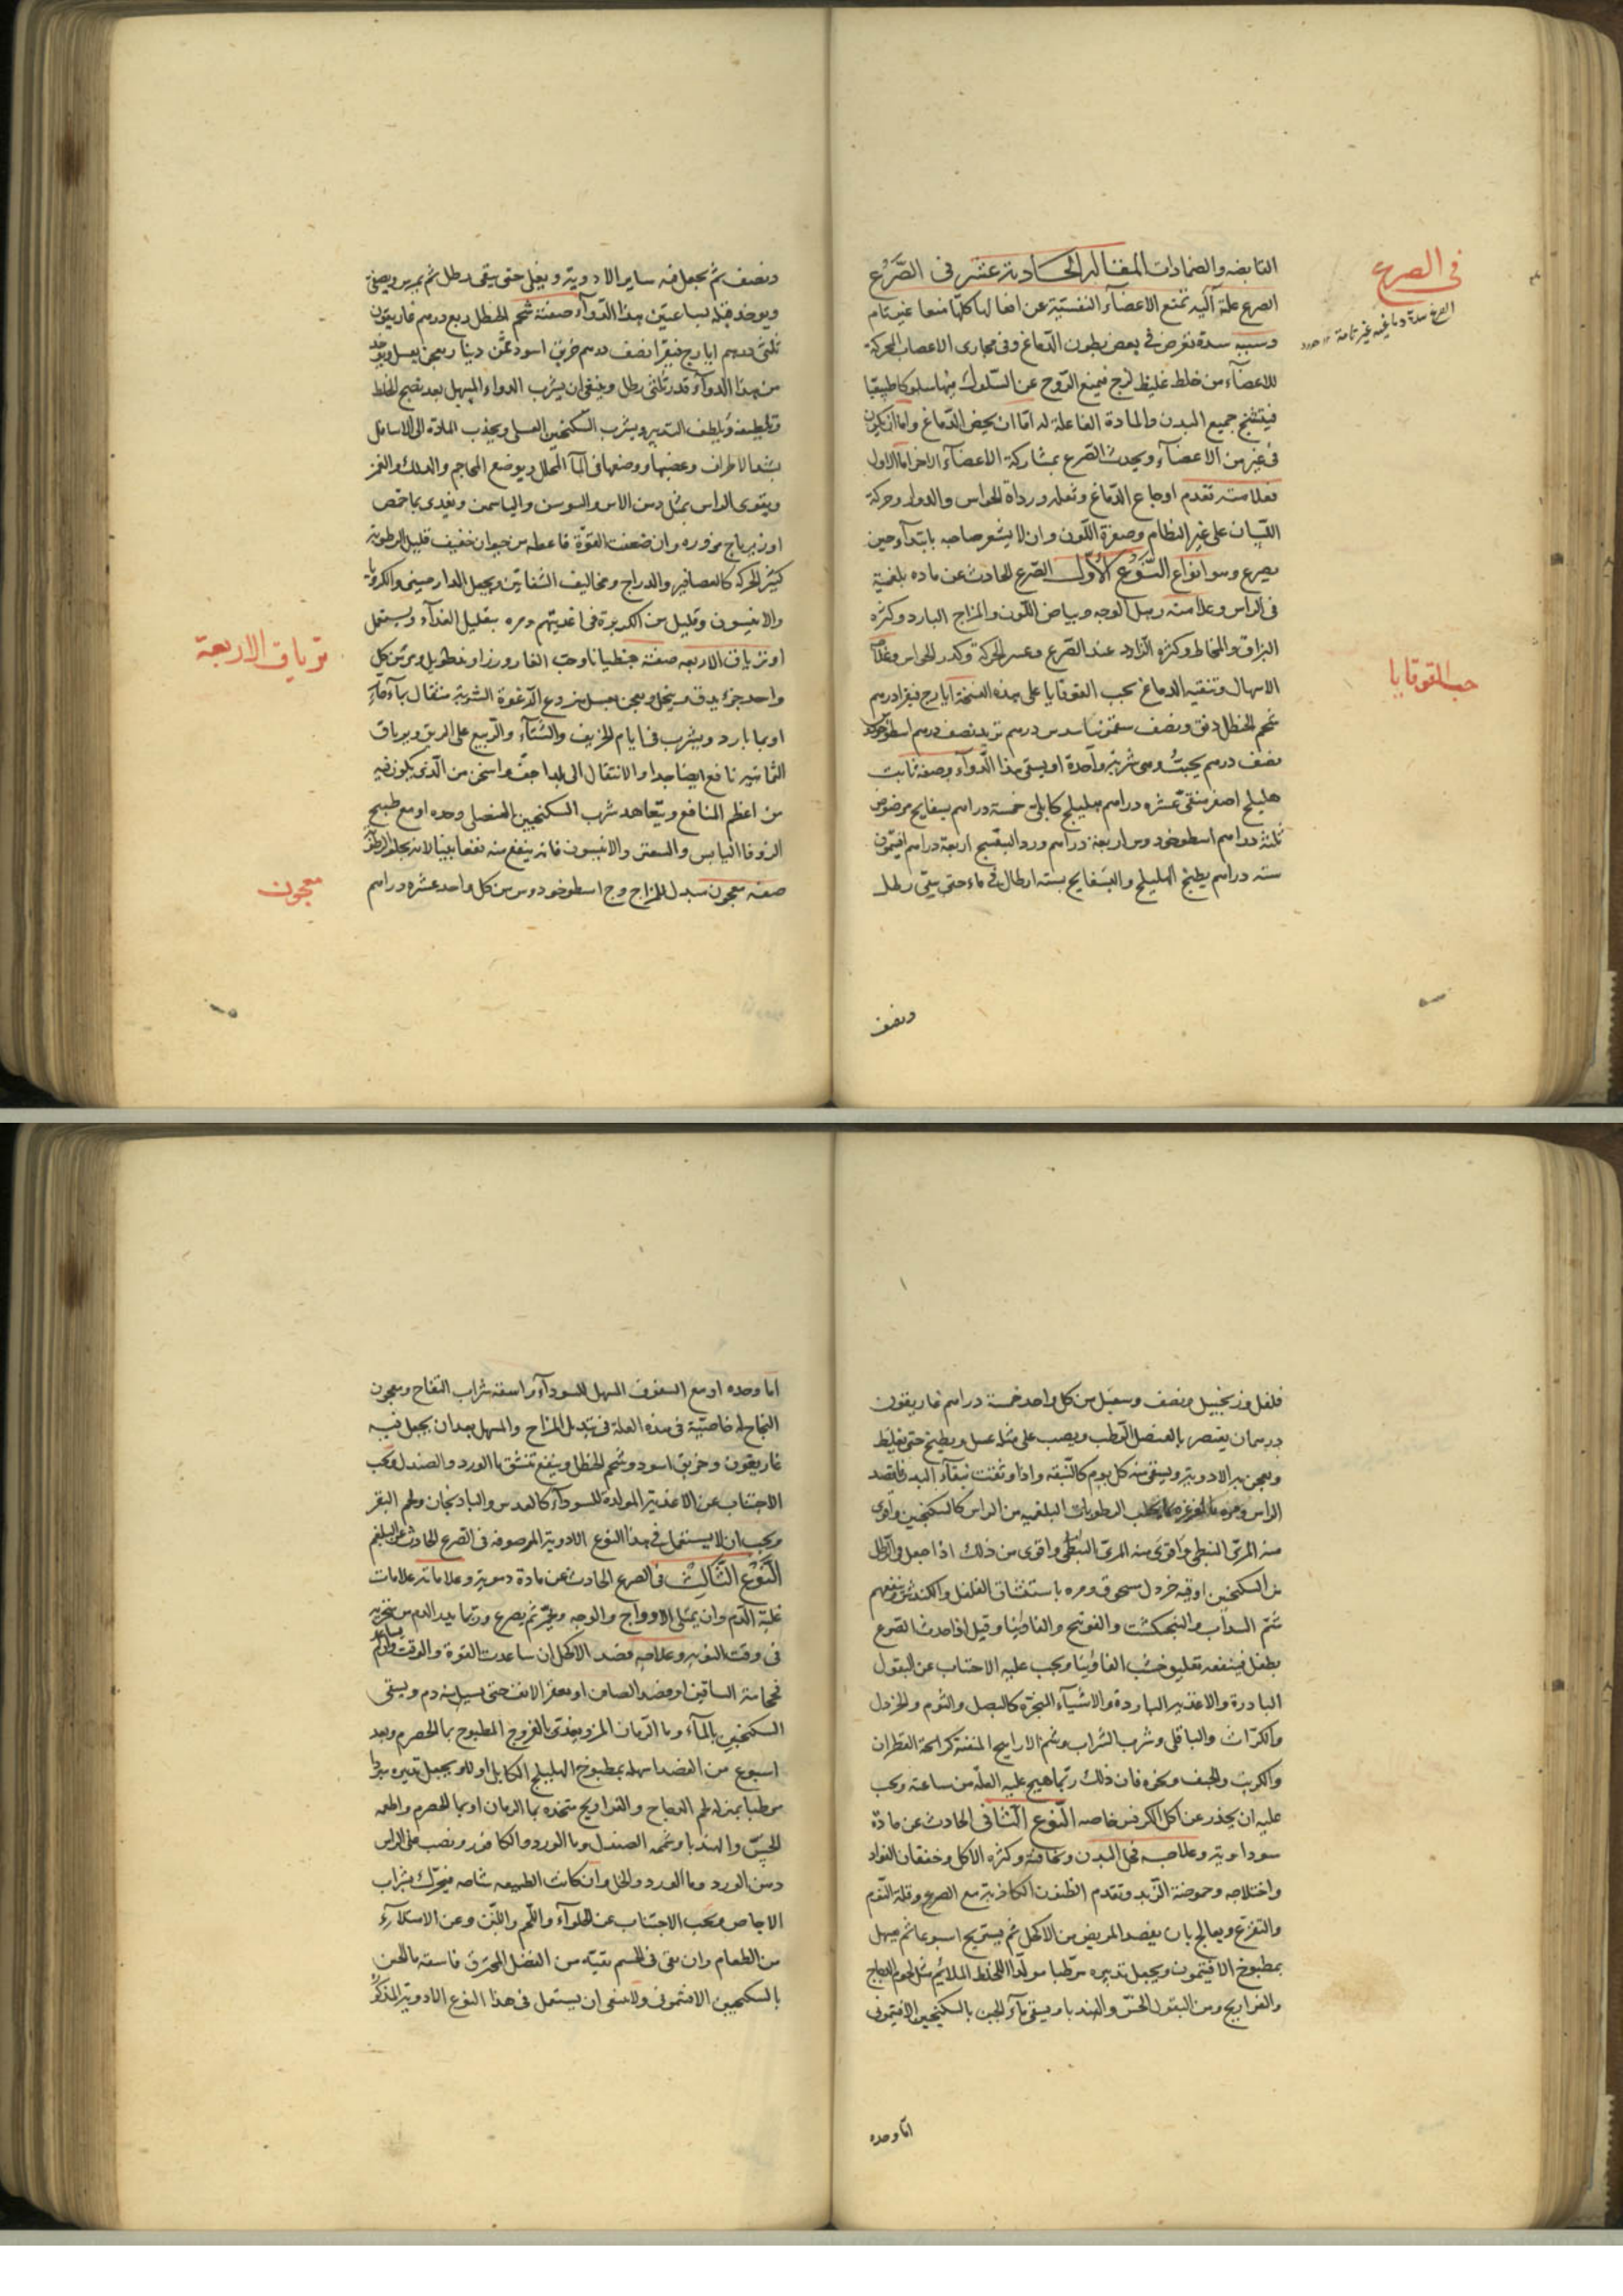 في الصرع
القابضه والضمادات المقالة الحادية عشر في الصَّرْع
الصرع علة آلية تمنع الاعضآء النفسية عن افعالها كلها منعا غير تام
وسببه سدة تعرض في بعض بطون الدماغ وفي مجارى الاعصاب المحركة
للاعضآء من خلط غليظ لزج فيمنع الروح عن السلوك فيها سلوكا طبيعيا
فيتشنج جميع البدن والمادة الفاعلة له اما ان يخص الدماغ واما ان يكون
في غيره من الاعضآء ويحدث الصرع بمشاركة الاعضآء الاخر اما الاول
فعلامته تقدم اوجاع الدماغ وثقله ورداة الحواس والدوار وحركة
اللسان على غير النظام وصفرة اللون وان لا يشعر صاحبه بابتدآء حين
يصرع وهو انواع النَّوْع الأوّل الصرع الحادث عن ماده بلغمية
في الراس وعلامته رهل الوجه وبياض اللون والمزاج البارد وكثرة
البزاق والمخاط وكثرة الزبد عند الصرع وعسر الحركة وكدر الحواس وعلاجه
حب القوقايا
الاسهال وتنقيه الدماغ بحب القوقايا على هذه النسخة ايارج فيقرا درهم
شحم الحنظل دنق ونصف سقمونيا سدس درهم تربد نصف درهم اسطوخودس
نصف درهم يحبب وهى شربة واحدة او يسقى هذا الدوآء وصفته ثابت
هليلج اصفر منقى عشرة دراهم هليلج كابلى خمسة دراهم بسفايج مرضوض
ثلثة دراهم اسطوخودوس اربعة دراهم ورد البنفسج اربعة دراهم افتيمون
سته دراهم يطبخ الهليلج والبسفايج بسته ارطال ماء حتى يبقى رطل
ونصف
ونصف ثم يجعل فيه ساير الادوية ويغلى حتى يبقى رطل ثم يمرس ويصفى
ويوخذ قبله بساعتين هذا الدوآء صفته شحم الحنظل ربع درهم غاريقون
ثلثى درهم ايارج فيقرا نصف درهم خربق اسود ثمن دينار يعجن بعسل ويوخذ
من هذا الدوآء قدر ثلثى رطل وينبغى ان يشرب الدواء المسهل بعد نضج الخلط
وتلطيفه ويلطف التدبير ويشرب السكنجبين العسلى ويجذب المادة الى الاسافل
بشد الاطراف وعضبها ووضعها في المآ المحلل ويوضع المحاجم والدلك والغمز
ويقوى الراس بمثل دهن الاس والسوسن والياسمن ويغذى بماحمص
او زيرباج مزوره وان ضعفت القوّة فاعطه من حيوان خفيف قليل الرطوبة
كثير الحركة كالعصافير والدراج ومخاليف الشفانين ويجعل الدارصينى والكرويا
والانيسون وقليل من الكزبرة في اغذيتهم ومره بتقليل الغذآء ويستعمل
ترياق الاربعة
او ترياق الاربعه صفته جنطيانا وحب الغار وزراوند طويل ومر من كل
واحد جزء يدق وينخل ويعجن بعسل منزوع الرغوة الشربة مثقال بمآء حار
او بما بارد ويشرب في ايام الخريف والشتآء والربيع على الريق وترياق
الثمانيه نافع ايضا جدا والانتقال الى بلد اجف واسخن من الذى يكون فيه
من اعظم المنافع ويتعاهد شرب السكنجبين العنصلى وحده او مع طبيخ
الزوفا اليابس والسعتر والانيسون فانه ينفع منه نفعا بينا لانه يجلو الرطوبة
معجون
صفه معجون يبدل المزاج وج اسطوخودوس من كل واحد عشرة دراهم
فلفل وزنجبيل ونصف وسنبل من كل واحد خمسة دراهم غاريقون
درهمان يعتصر بالعنصل الرطب ويصب على مثله عسل ويطبخ حتى يغلظ
ويعجن به الادوية ويسقى منه كل يوم كالنبقة واذا وثقت بنقآء البدن فاقصد
الراس ومره بالغرغرة بما يجلب الرطوبات البلغميه من الراس كالسكنجبين واقوى
منه المرّى النبطى واقوى من ذلك اذا جعل في الرطل
من السكنجبين اوقيه خردل مسحوق ومره باستنشاق الفلفل والكندش وينفعهم
شم السداب والفنجكشت والفوتنج والفاوينا وقيل اذا حدث الصرع
بطفل فينفعه تعليق خشب الفاوينا ويجب عليه الاجتناب عن البقول
الباردة والاغذيه الباردة والاشيآء المبخرة كالبصل والثوم والخردل
والكراث والباقلى وشرب الشراب وشم الاراييح المنتنة كرائحة القطران
والكبريت والجيف ونحوه فان ذلك ربما هيج عليه العلة من ساعته ويجب
عليه ان يحذر عن اكل الكرفس خاصه النّوع الثاني الحادث عن مادة
سوداوية وعلامته قحل البدن ونحافته وكثرة الاكل وخفقان الفواد
واختلاجه وحموضة الزبد وتقدم الظنون الكاذبة مع الصرع وقلة النوم
والتفزع ويعالج بان يفصد المريض من الاكحل ثم يستريح اسبوعا ثم يسهل
بمطبوخ الافتيمون ويجعل تدبيره مرطبا مولدا للخلط الملائم مثل لحوم الدجاج
والفراريج ومن البقول الخس والهندبا ويسقى مآء الجبن بالسكنجبين الافتيمونى
اما وحده
اما وحده او مع السفوف المسهل للسودآء واسقه شراب التفاح ومعجون
النجاح له خاصيّة في هذه العلة في تبديل المزاج والمسهل بعد ان يجعل فيه
غاريقون وخربق اسود وشحم الحنظل وينفع تنشق ماالورد والصندل ويجب
الاجتناب عن الاغذية المولدة للسودآء كالعدس والباذنجان ولحم البقر
ويجب ان لا يستعمل في هذا النوع الادوية الموصوفه في الصرع الحادث عن البلغم
النّوْع الثّالث في الصرع الحادث عن مادة دموية وعلاماته علامات
غلبة الدّم وان يمتلى الاوداج والوجه ويحمر ثم يصرع وربما يبد الدم من منخريه
في وقت النوبه وعلاجه فصد الاكحل ان ساعدت القوة والوقت
فحجامة الساقين او فصد الصافن او يعقر الانف حتى يسيل منه دم ويسقى
السكنجبين بالمآء وما الرمان المز ويغذى بالفروج المطبوخ بما الحصرم وبعد
اسبوع من الفصد اسهله بمطبوخ الهليلج الكابلى ويجعل تدبيره مبردا
مرطبا بمنزله لحم الدجاج والفراريج متخذه بما الرمان او بما الحصرم واطعمه
الخسّ والهندبا وشمه الصندل وما الورد والكافور ونصب على الراس
دهن الورد وما الورد والخل وان كانت الطبيعه فيحرك بشراب
الاجاص ويجب الاجتناب عن الحلوآء واللحم واللبن وعن الامتلاء
من الطعام وان بقى في الجسم بقيّه من الفضل المحترق فاسقه ماالجبن
بالسكنجبين الافتيمونى ولا ينبغى ان يستعمل في هذا النوع الادوية المذكورة